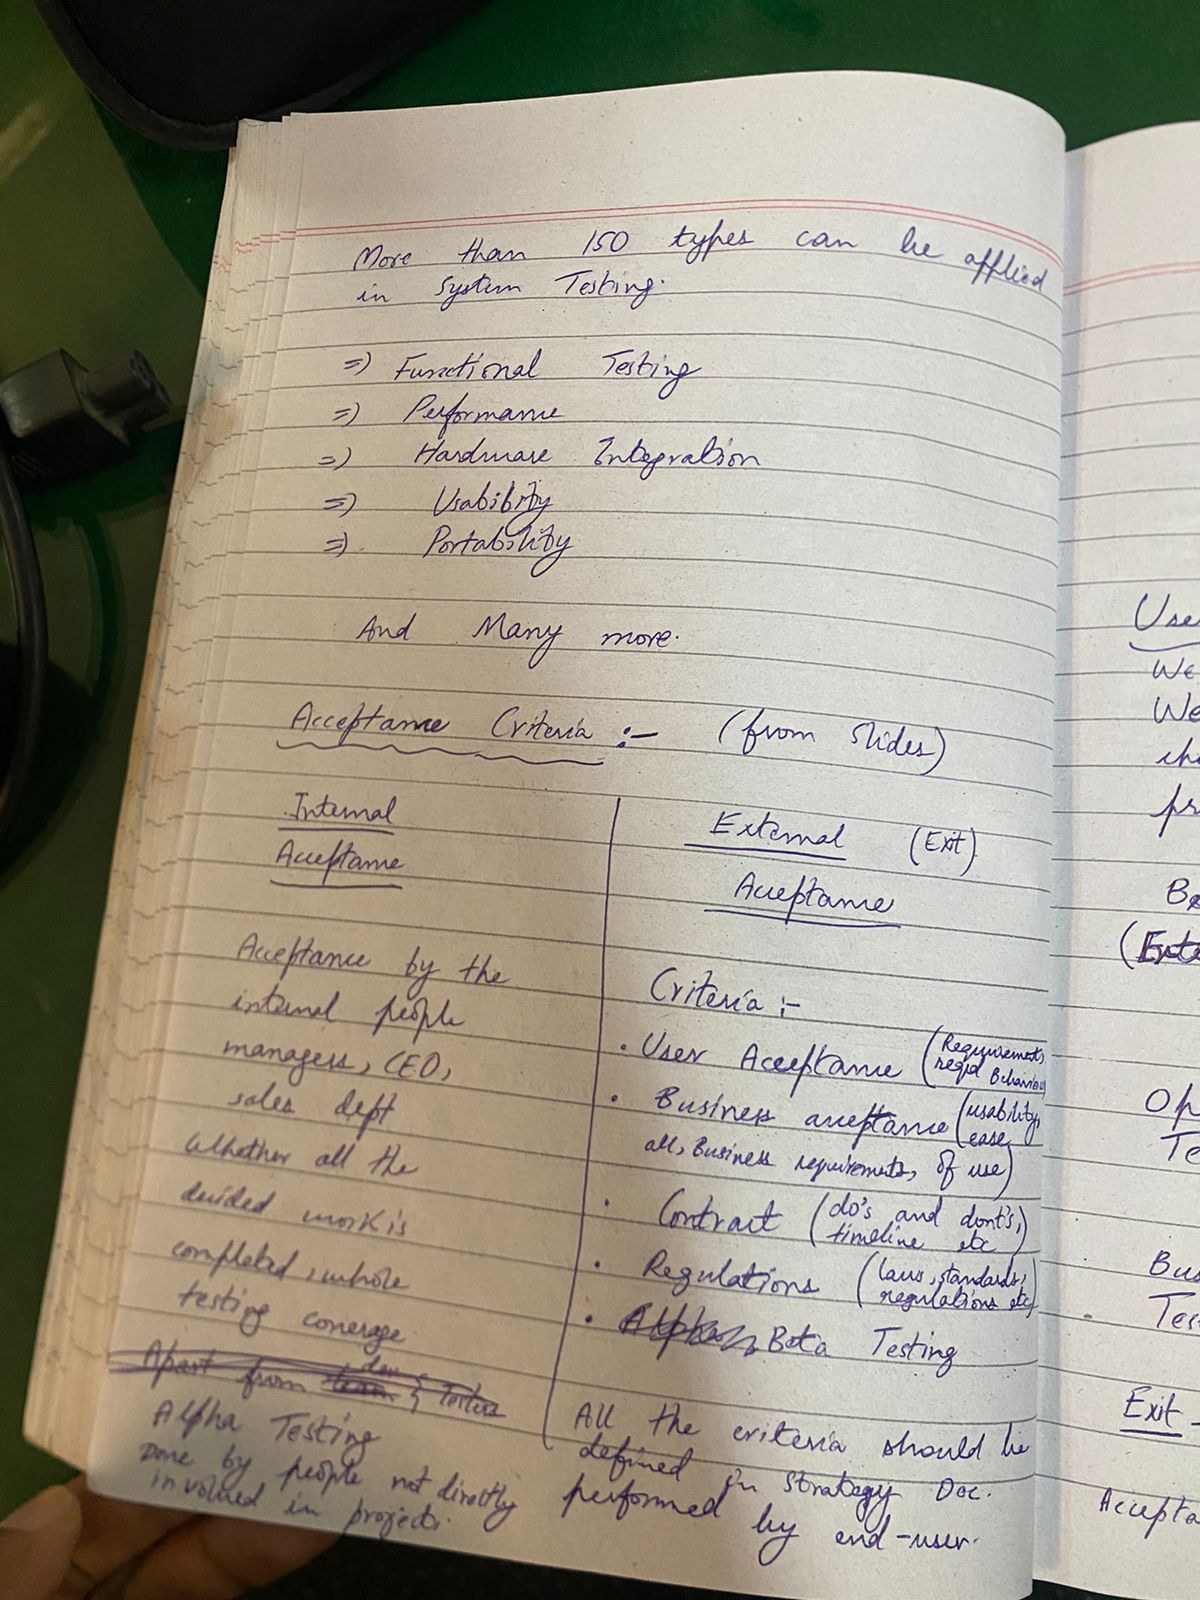 More than 150 types can be applied
in System Testing.
=) Functional Testing
=) Performance
=) Hardware Integration
=) Usability
=) Portability
And Many more.
Acceptance Criteria :- (from slides)
Internal
Acceptance
Acceptance by the
internal people
managers, CEO,
sales dept
Whether all the
decided work is
completed, whole
testing coverage.
Apart from team dev & Testers
Alpha Testing
Done by people not directly
involved in project.
External (Exit)
Acceptance
Criteria :-
• User Acceptance (Requirements, reqd Behaviour)
• Business acceptance (usability, ease
all, Business requirements, of use)
• Contract (do's and dont's, timeline etc)
• Regulations (laws, standards, regulations etc)
• Alpha, Beta Testing
All the criteria should be
defined in strategy Doc.
performed by end-user.
Use
We
We
pr
Op
Te
Bus
Tes
Exit -
Accepta